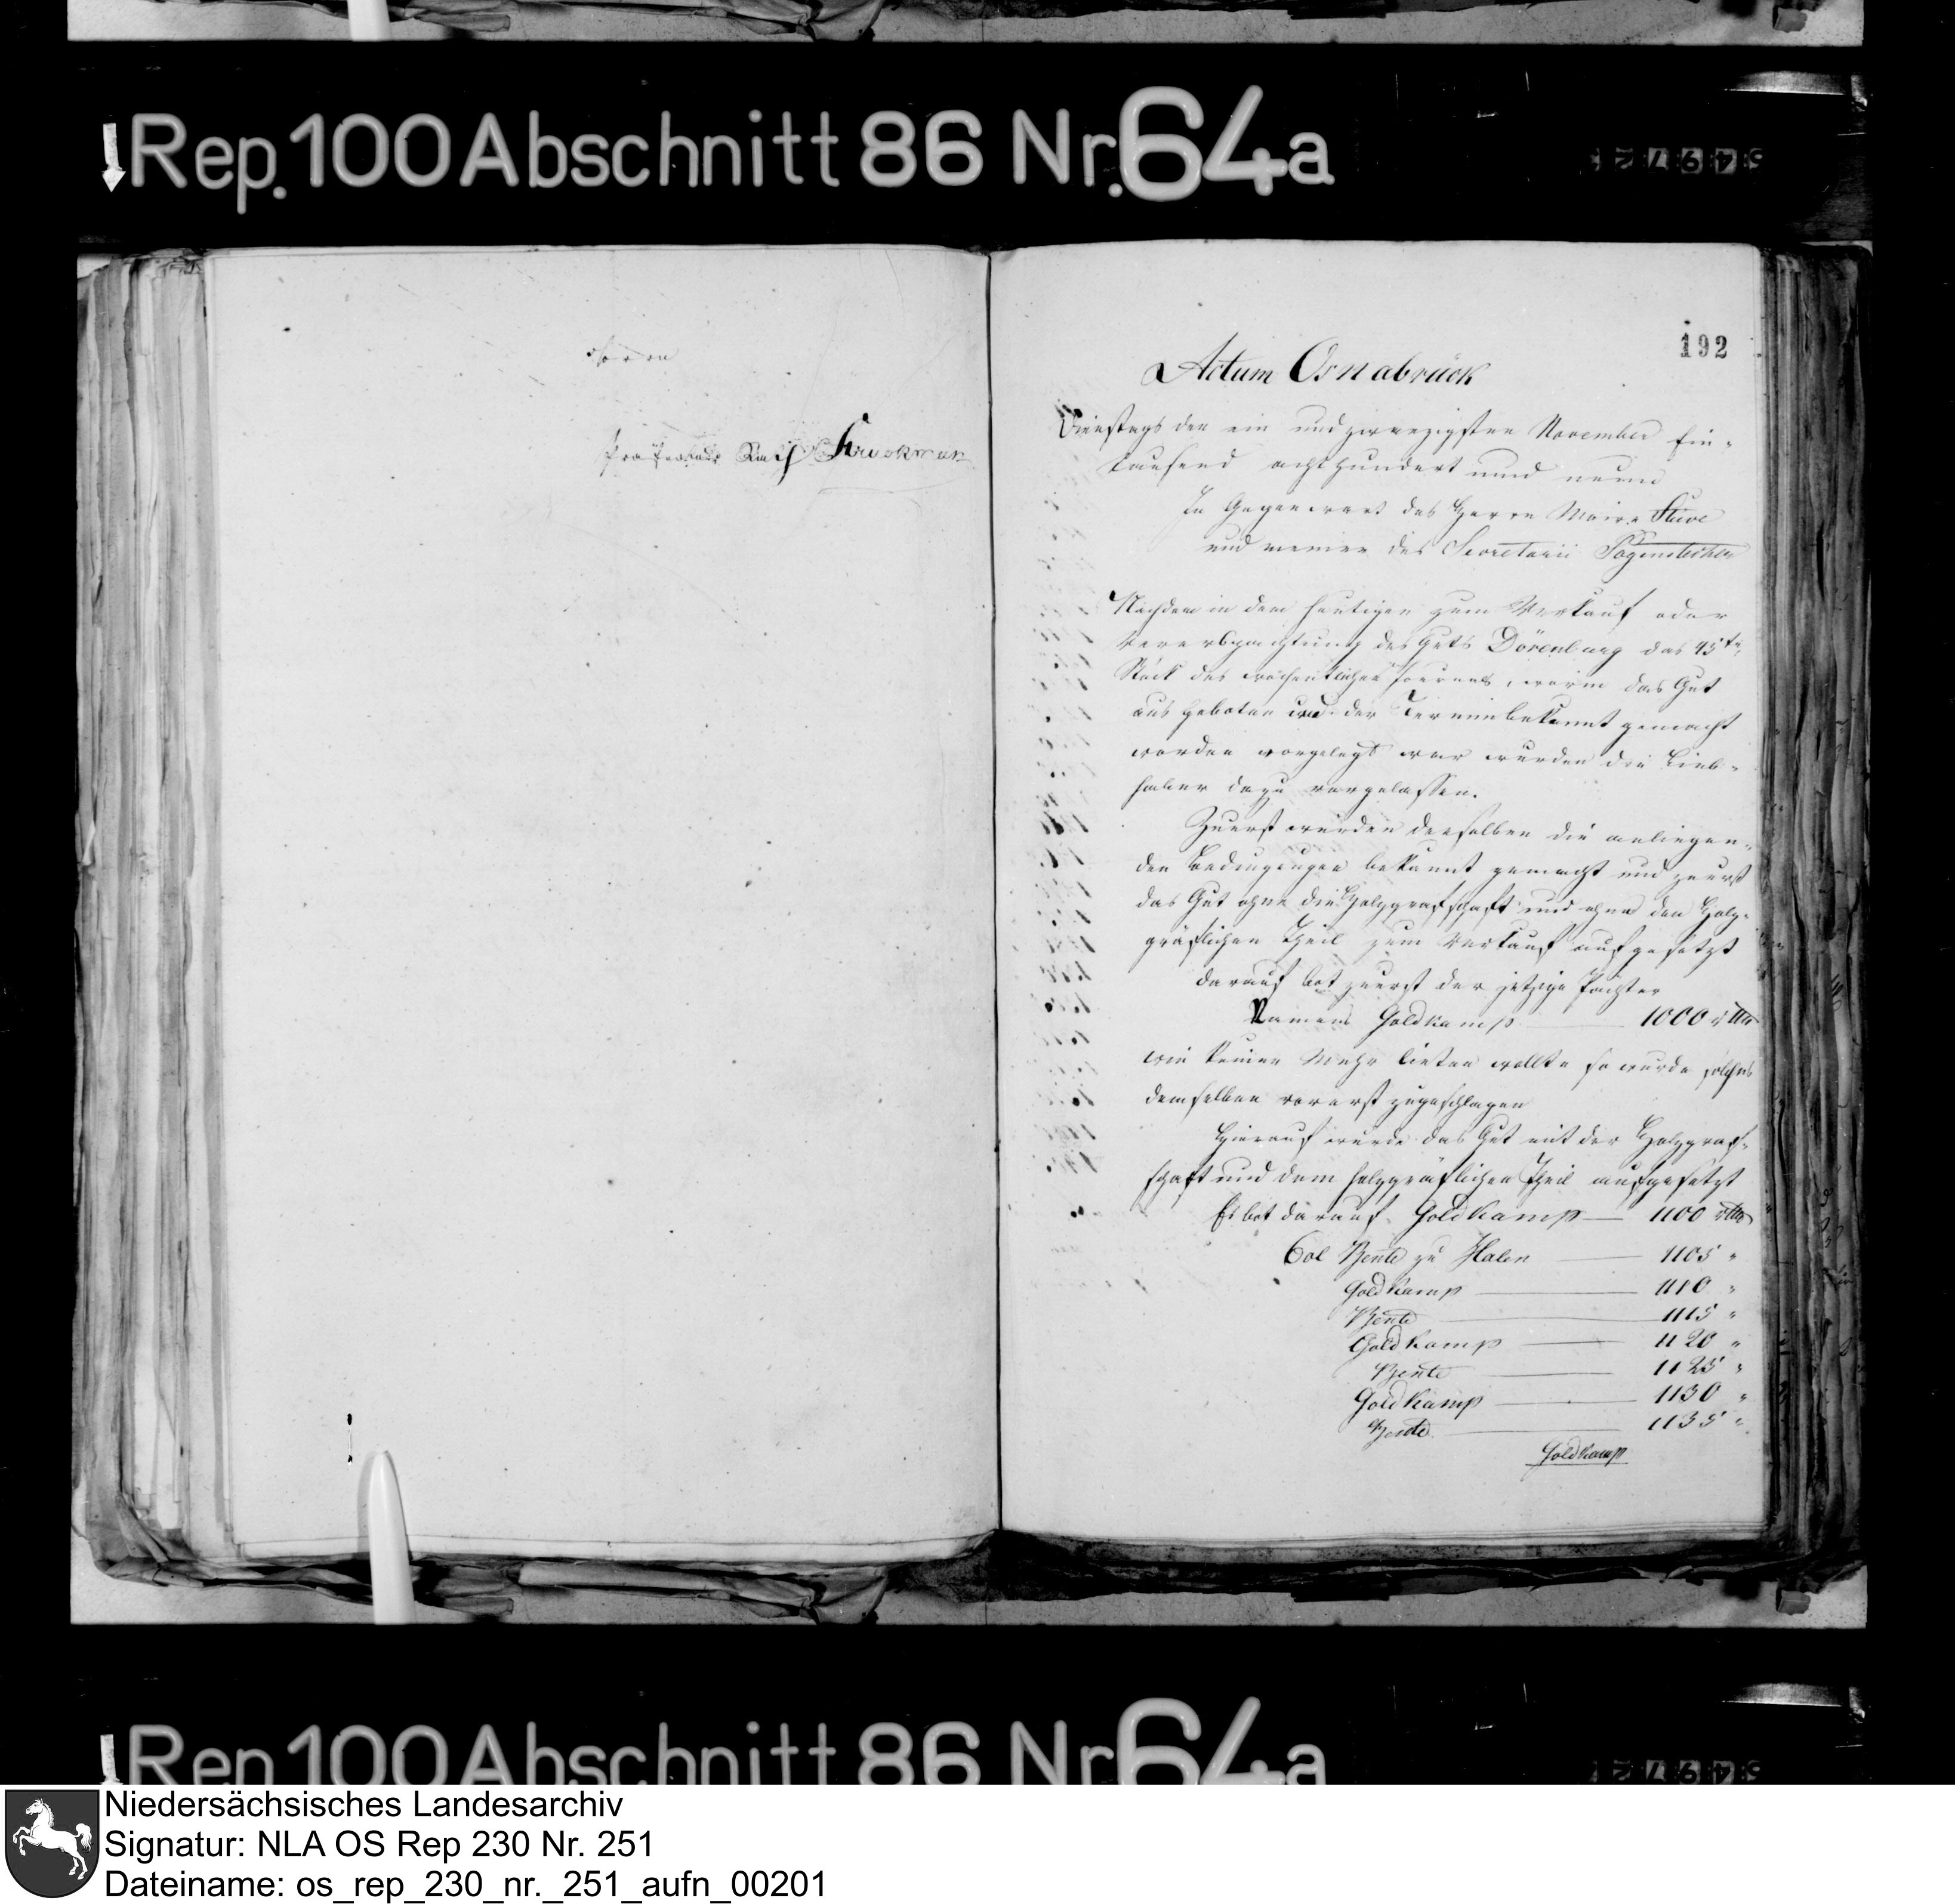 Rep. 100 Abschnitt 86 Nr. 64a
Herrn
Präfectur Rath Struckman
192
Actum Osnabrück
Dienstags den ein und zwanzigsten November Ein-
tausend acht hundert und neun
In Gegenwart des Herrn Maire Stüve
und meiner des Secretarii Pagenstecher
Nachdem in dem heutigen zum Verkauf oder
Vererbpachtung des Guts Dörenburg das 45te
Stück des wöchentlichen, worin das Gut
aus geboten und der Termin bekannt gemacht
worden vorgelegt war wurden die Lieb-
haber dazu vorgelassen.
Zuerst wurden denselben die anliegen-
den Bedingungen bekannt gemacht und zuerst
das Gut ohne die Holzgrafschaft und ohne den Holz-
gräflichen Theil zum Verkauf aufgesetzt
darauf bot zuerst der jetzige Pächter
Namens Goldkamp — 1000 rthlr
wie keiner Mehr bieten wollte so wurde solches
demselben vorerst zugeschlagen
Hierauf wurde das Gut mit der Holzgraf-
schaft und dem holzgräflichen Theil aufgesetzt
Es bot darauf Goldkamp — 1100 rthlr
Col Bente zu Halen — 1105 "
Goldkamp — 1110 "
Bente — 1115 "
Goldkamp — 1120 "
Bente — 1125 "
Goldkamp — 1130 "
Bente — 1135 "
Goldkamp
Rep. 100 Abschnitt 86 Nr. 64a
Niedersächsisches Landesarchiv
Signatur: NLA OS Rep 230 Nr. 251
Dateiname: os_rep_230_nr._251_aufn_00201